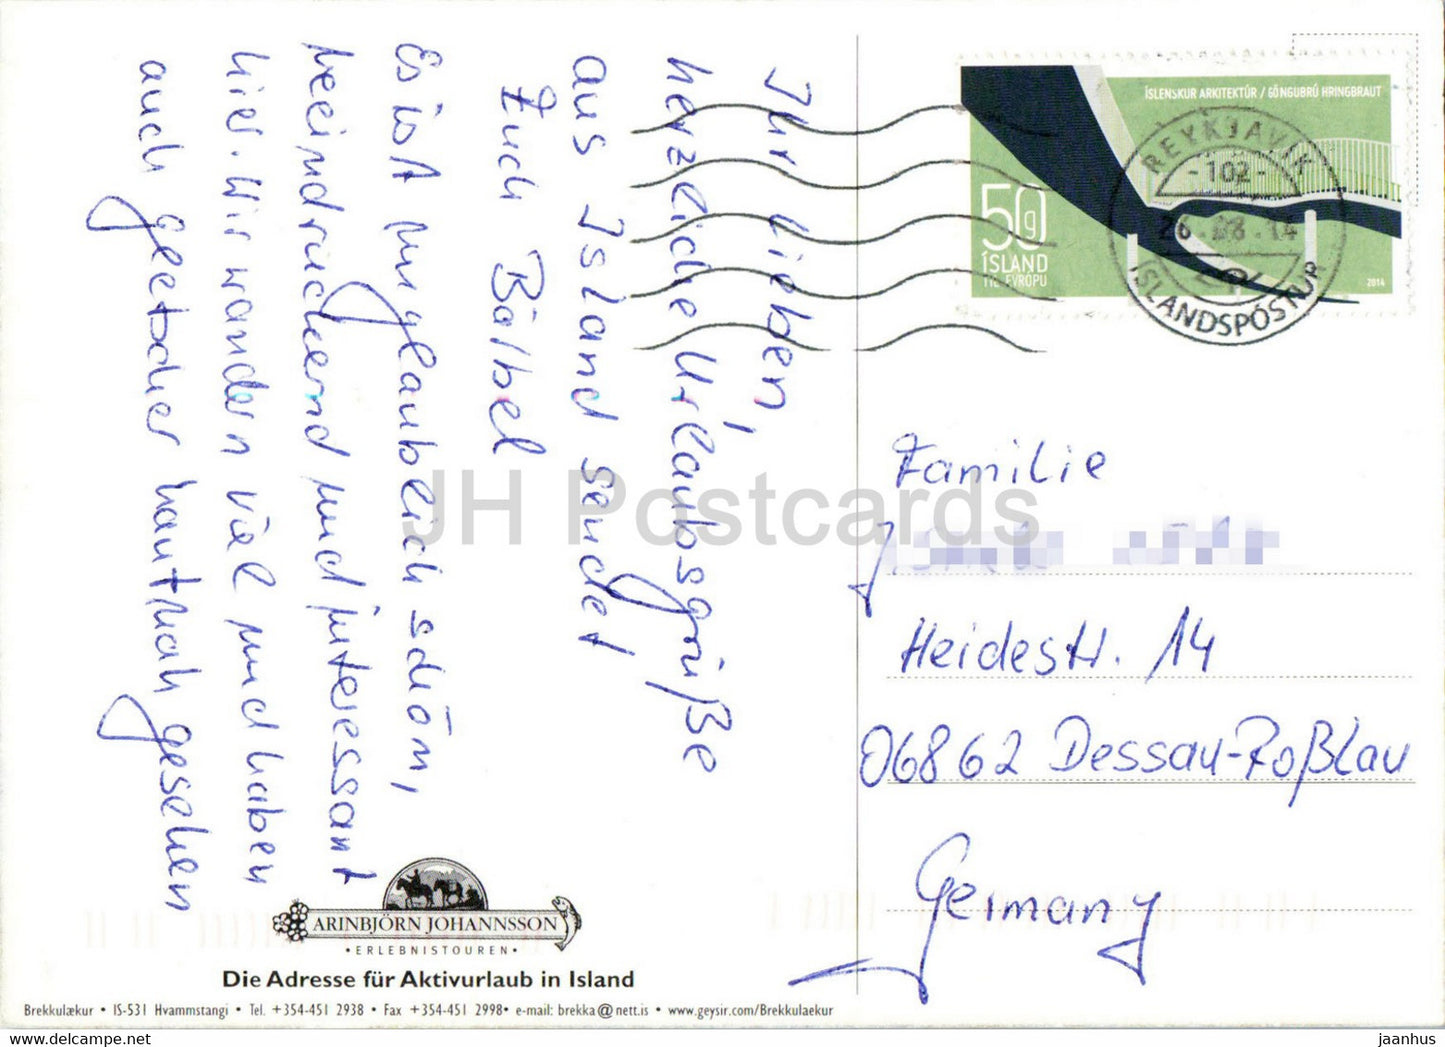 Ihr lieben,
herzliche Urlaubsgrüße
aus Island sendet
Euch Bärbel
Es ist unglaublich schön,
beeindruckend und interessant
hier. Wir wandern viel und haben
auch gletscher hautnah gesehen
ÍSLENSKUR ARKITEKTÚR / GÖNGUBRÚ HRINGBRAUT
50g
ÍSLAND
TIL EVRÓPU
2014
REYKJAVÍK
- 102 -
26.08.14
ÍSLANDSPÓSTUR
Familie
Heidestr. 14
06862 Dessau-Roßlau
Germany
JH Postcards
ARINBJÖRN JOHANNSSON
• ERLEBNISTOUREN •
Die Adresse für Aktivurlaub in Island
Brekkulækur • IS-531 Hvammstangi • Tel. +354-451 2938 • Fax +354-451 2998• e-mail: brekka@nett.is • www.geysir.com/Brekkulaekur
www.delcampe.net
jaanhus